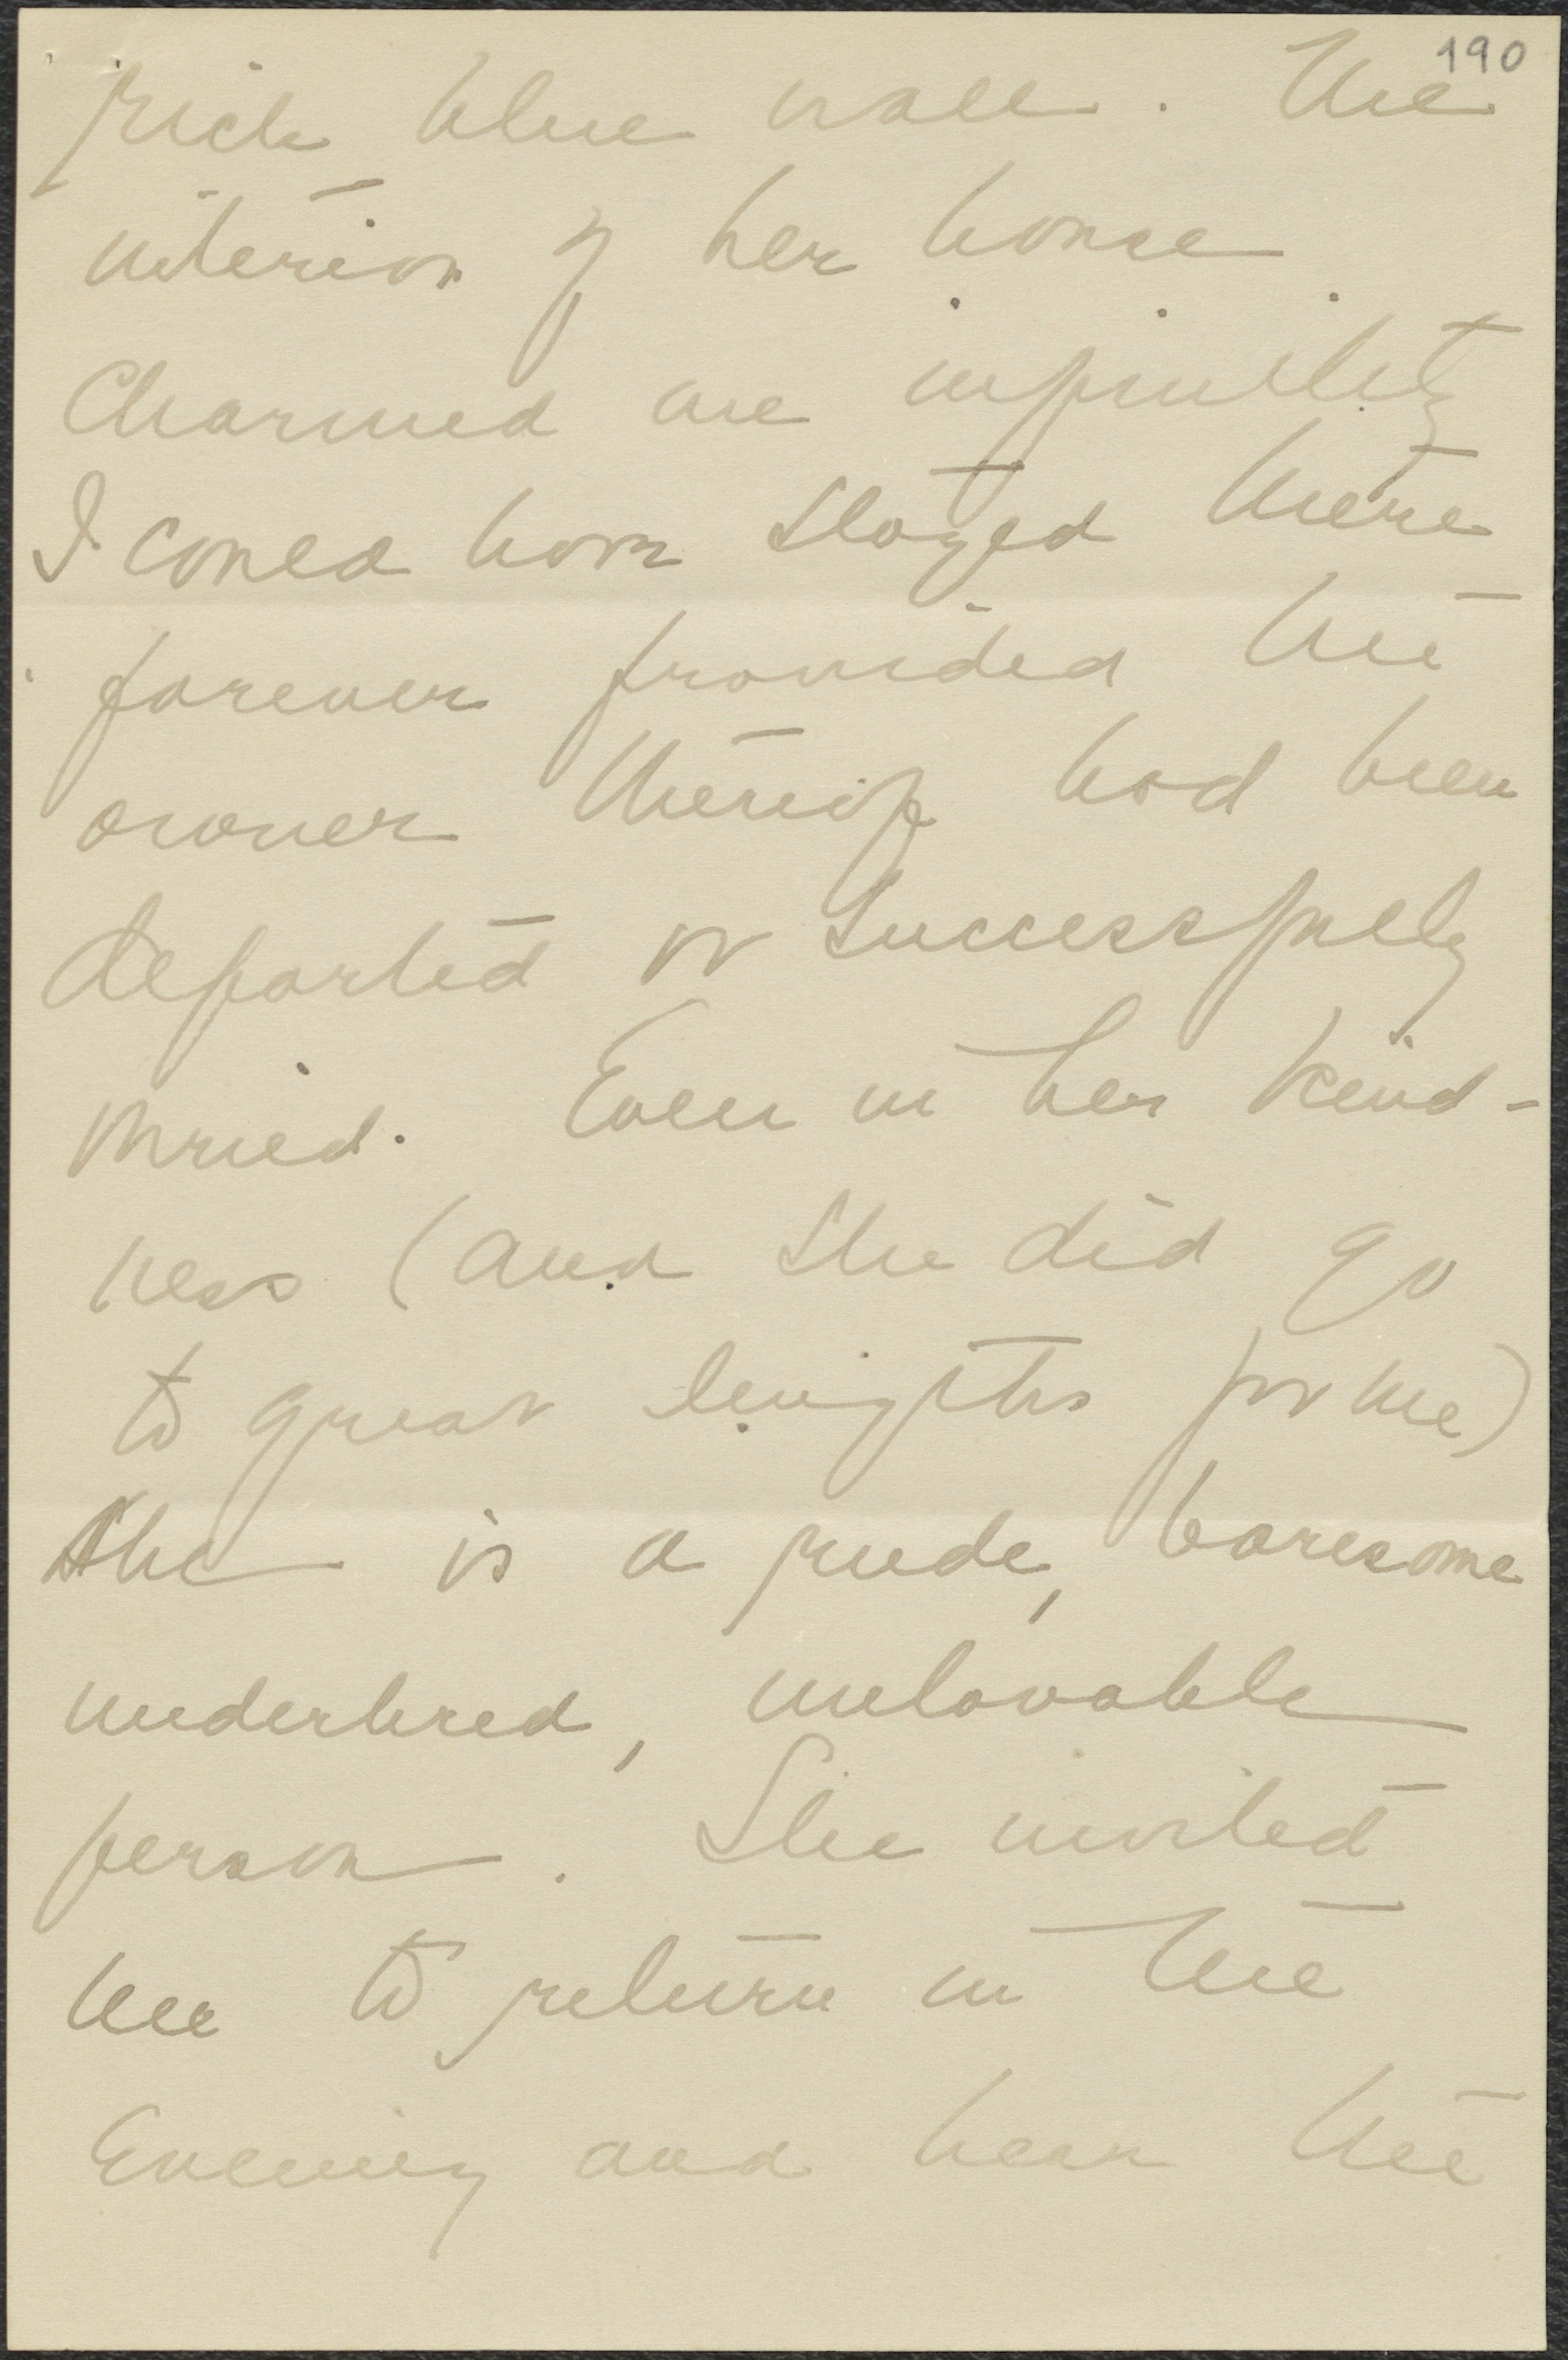 190
rich blue wall. The
interior of her house
Charmed me infinitely
I could have stayed there
forever provided the
owner thereof had been
departed or successfully
Even in her kind-
ness (and she did go
to great lengths for me)
She is a rude, boresome
underbred, unlovable
person. She invited
me to return in the
Evening and hear the